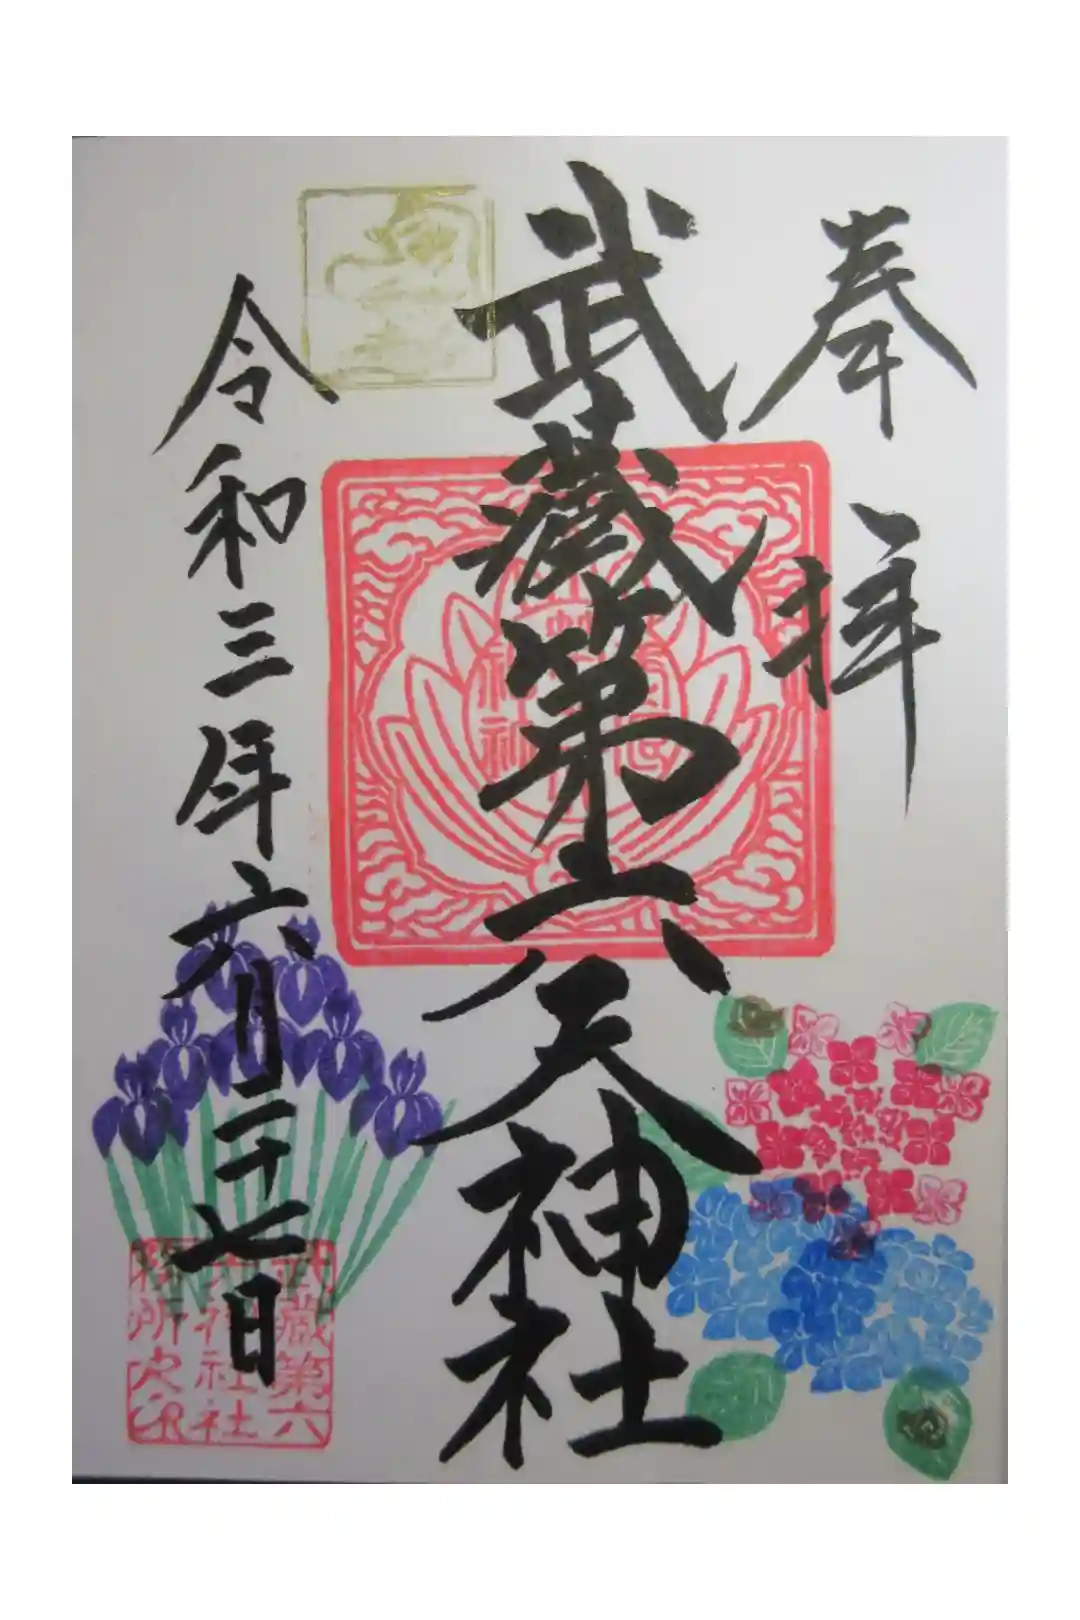 奉拝
武蔵第六天神社
令和三年六月二十七日
武蔵第六
天神社社
務所之印